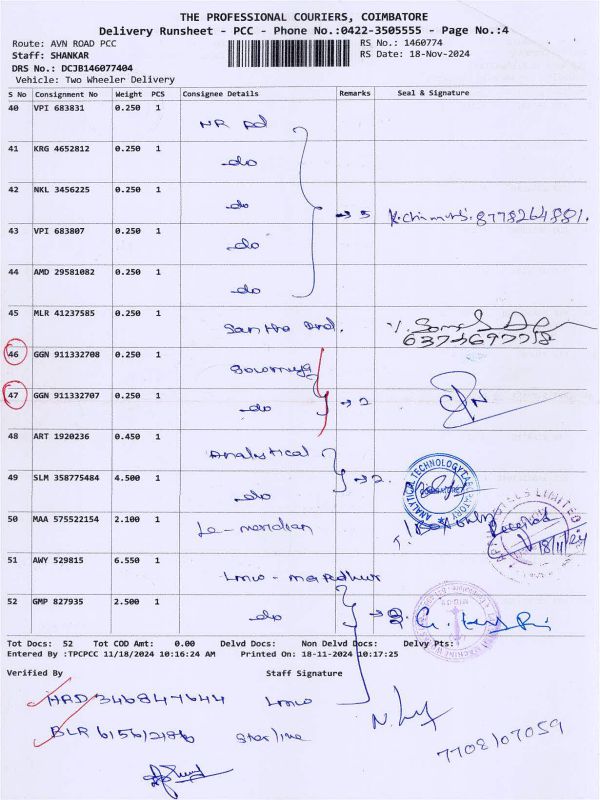 THE PROFESSIONAL COURIERS, COIMBATORE
Delivery Runsheet - PCC - Phone No.:0422-3505555 - Page No.:4
Route: AVN ROAD PCC RS No.: 1460774
Staff: SHANKAR RS Date: 18-Nov-2024
DRS No.: DCJB146077404
Vehicle: Two Wheeler Delivery
S No Consignment No Weight PCS Consignee Details Remarks Seal & Signature
40 VPI 683831 0.250 1 NR Rd
41 KRG 4652812 0.250 1 do
42 NKL 3456225 0.250 1 do 5 8778264881.
43 VPI 683807 0.250 1 do
44 AMD 29581082 0.250 1 do
45 MLR 41237585 0.250 1
46 GGN 911332708 0.250 1
47 GGN 911332707 0.250 1 do 2
48 ART 1920236 0.450 1 Analytical
49 SLM 358775484 4.500 1 do 2.
ANALYTICAL TECHNOLOGY
50 MAA 575522154 2.100 1 Le-meridian Received
18/11/24
51 AWY 529815 6.550 1
52 GMP 827935 2.500 1 do
Tot Docs: 52 Tot COD Amt: 0.00 Delvd Docs: Non Delvd Docs: Delvy Pts:
Entered By :TPCPCC 11/18/2024 10:16:24 AM Printed On: 18-11-2024 10:17:25
Verified By Staff Signature
HRD 346847644 Lmw
BLR Starline
7708107059